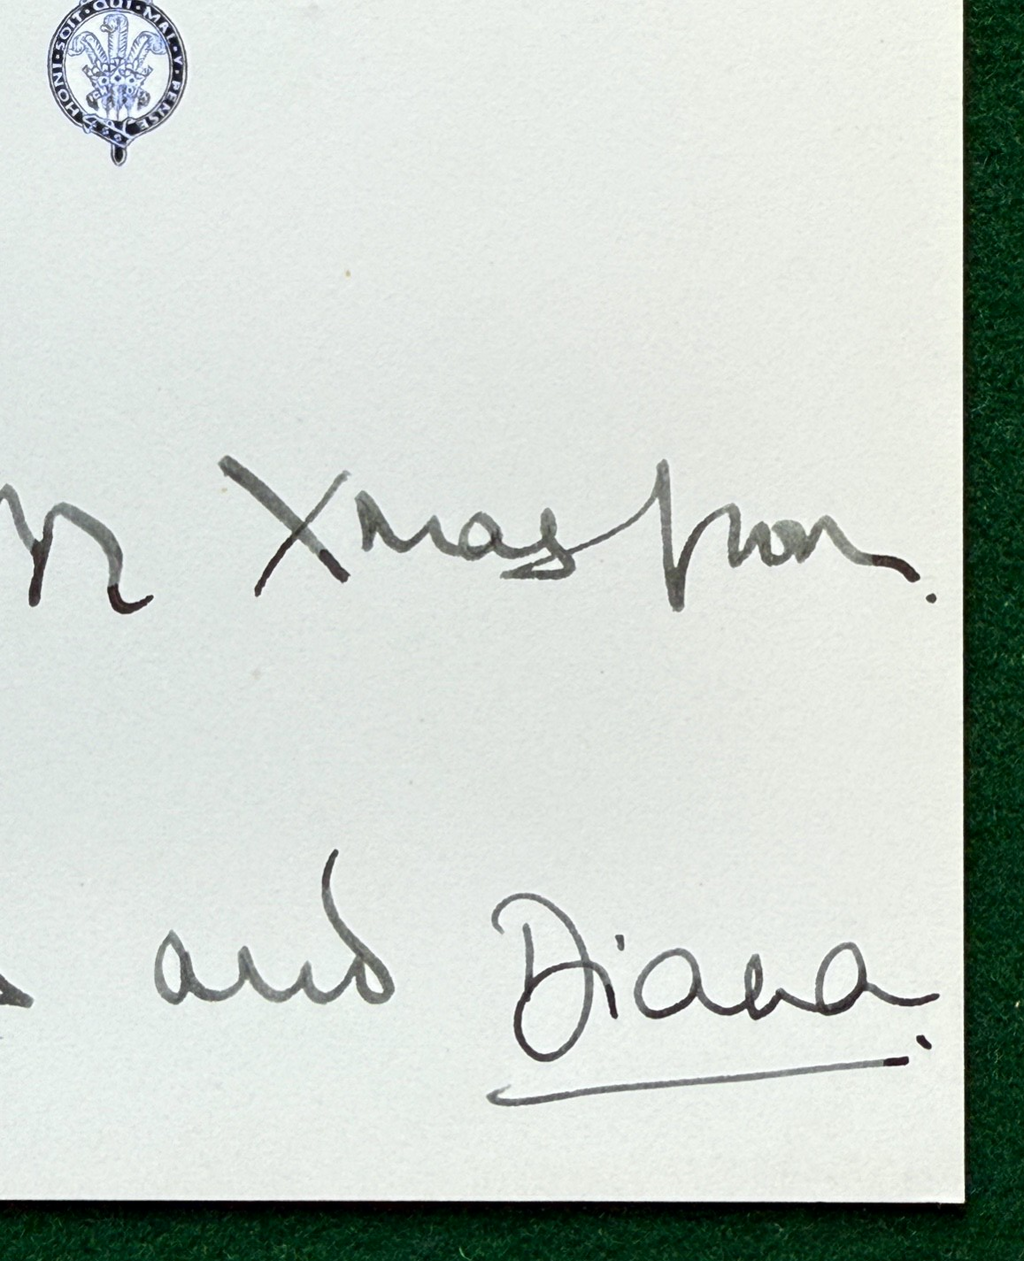 HONI·SOIT·QUI·MAL·Y·PENSE
Xmas from.
and Diana.